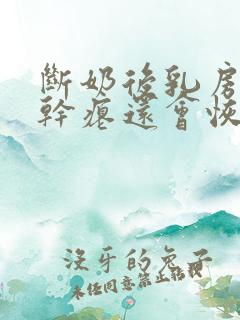 斷奶後乳房
幹癟還會恢
沒牙的兔子
未任同意禁止轉載